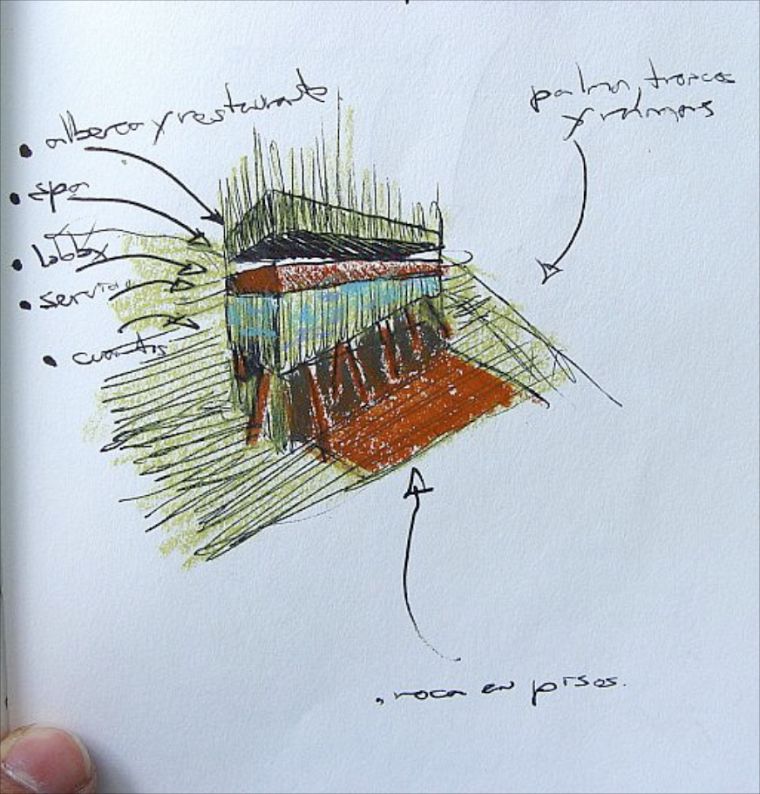 alberca y restaurante
spa
lobby
servicio
cuartos
palma, troncos
y
roca en pisos.